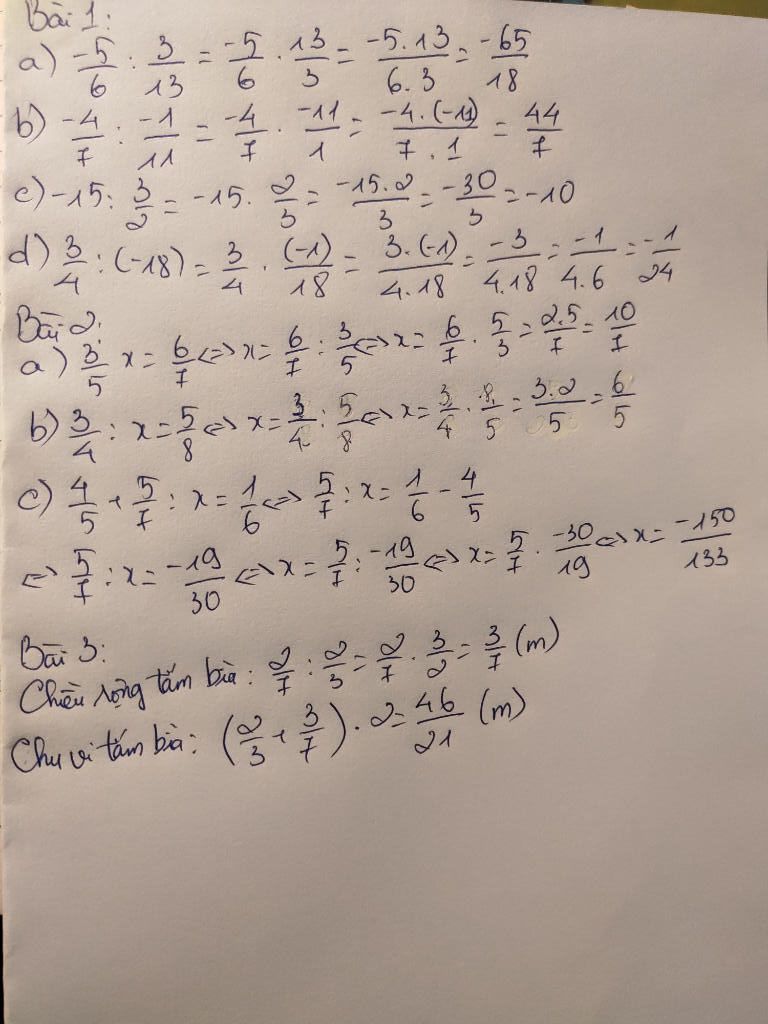 Bài 1:
a) -5/6 : 3/13 = -5/6 . 13/3 = -5.13/6.3 = -65/18
b) -4/7 : -1/11 = -4/7 . -11/1 = -4.(-11)/7.1 = 44/7
c) -15 : 3/2 = -15 . 2/3 = -15.2/3 = -30/3 = -10
d) 3/4 : (-18) = 3/4 . (-1)/18 = 3.(-1)/4.18 = -3/4.18 = -1/4.6 = -1/24
Bài 2:
a) 3/5 x = 6/7 <=> x = 6/7 : 3/5 <=> x = 6/7 . 5/3 = 2.5/7 = 10/7
b) 3/4 : x = 5/8 <=> x = 3/4 : 5/8 <=> x = 3/4 . 8/5 = 3.2/5 = 6/5
c) 4/5 + 5/7 : x = 1/6 <=> 5/7 : x = 1/6 - 4/5
<=> 5/7 : x = -19/30 <=> x = 5/7 : -19/30 <=> x = 5/7 . -30/19 <=> x = -150/133
Bài 3:
Chiều rộng tấm bìa: 2/7 : 2/3 = 2/7 . 3/2 = 3/7 (m)
Chu vi tấm bìa: (2/3 + 3/7) . 2 = 46/21 (m)